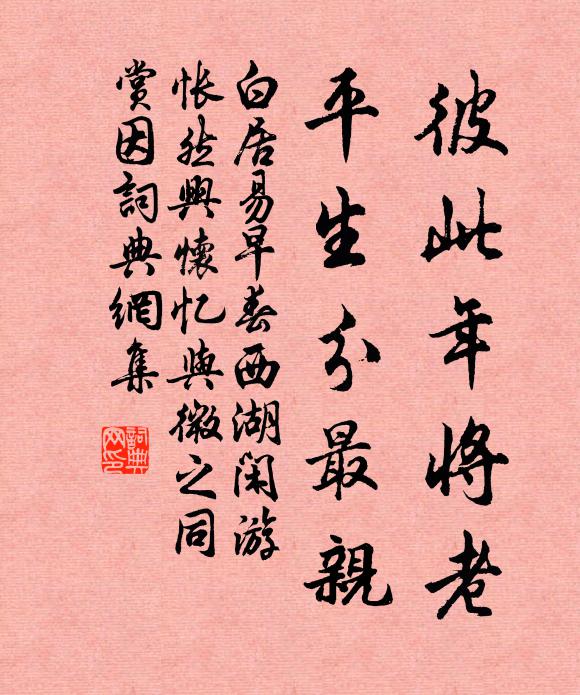 彼此年将老
平生分最親
白居易早春西湖闲游
怅然興懷忆與微之同
賞因詞典網集
詞典
网印